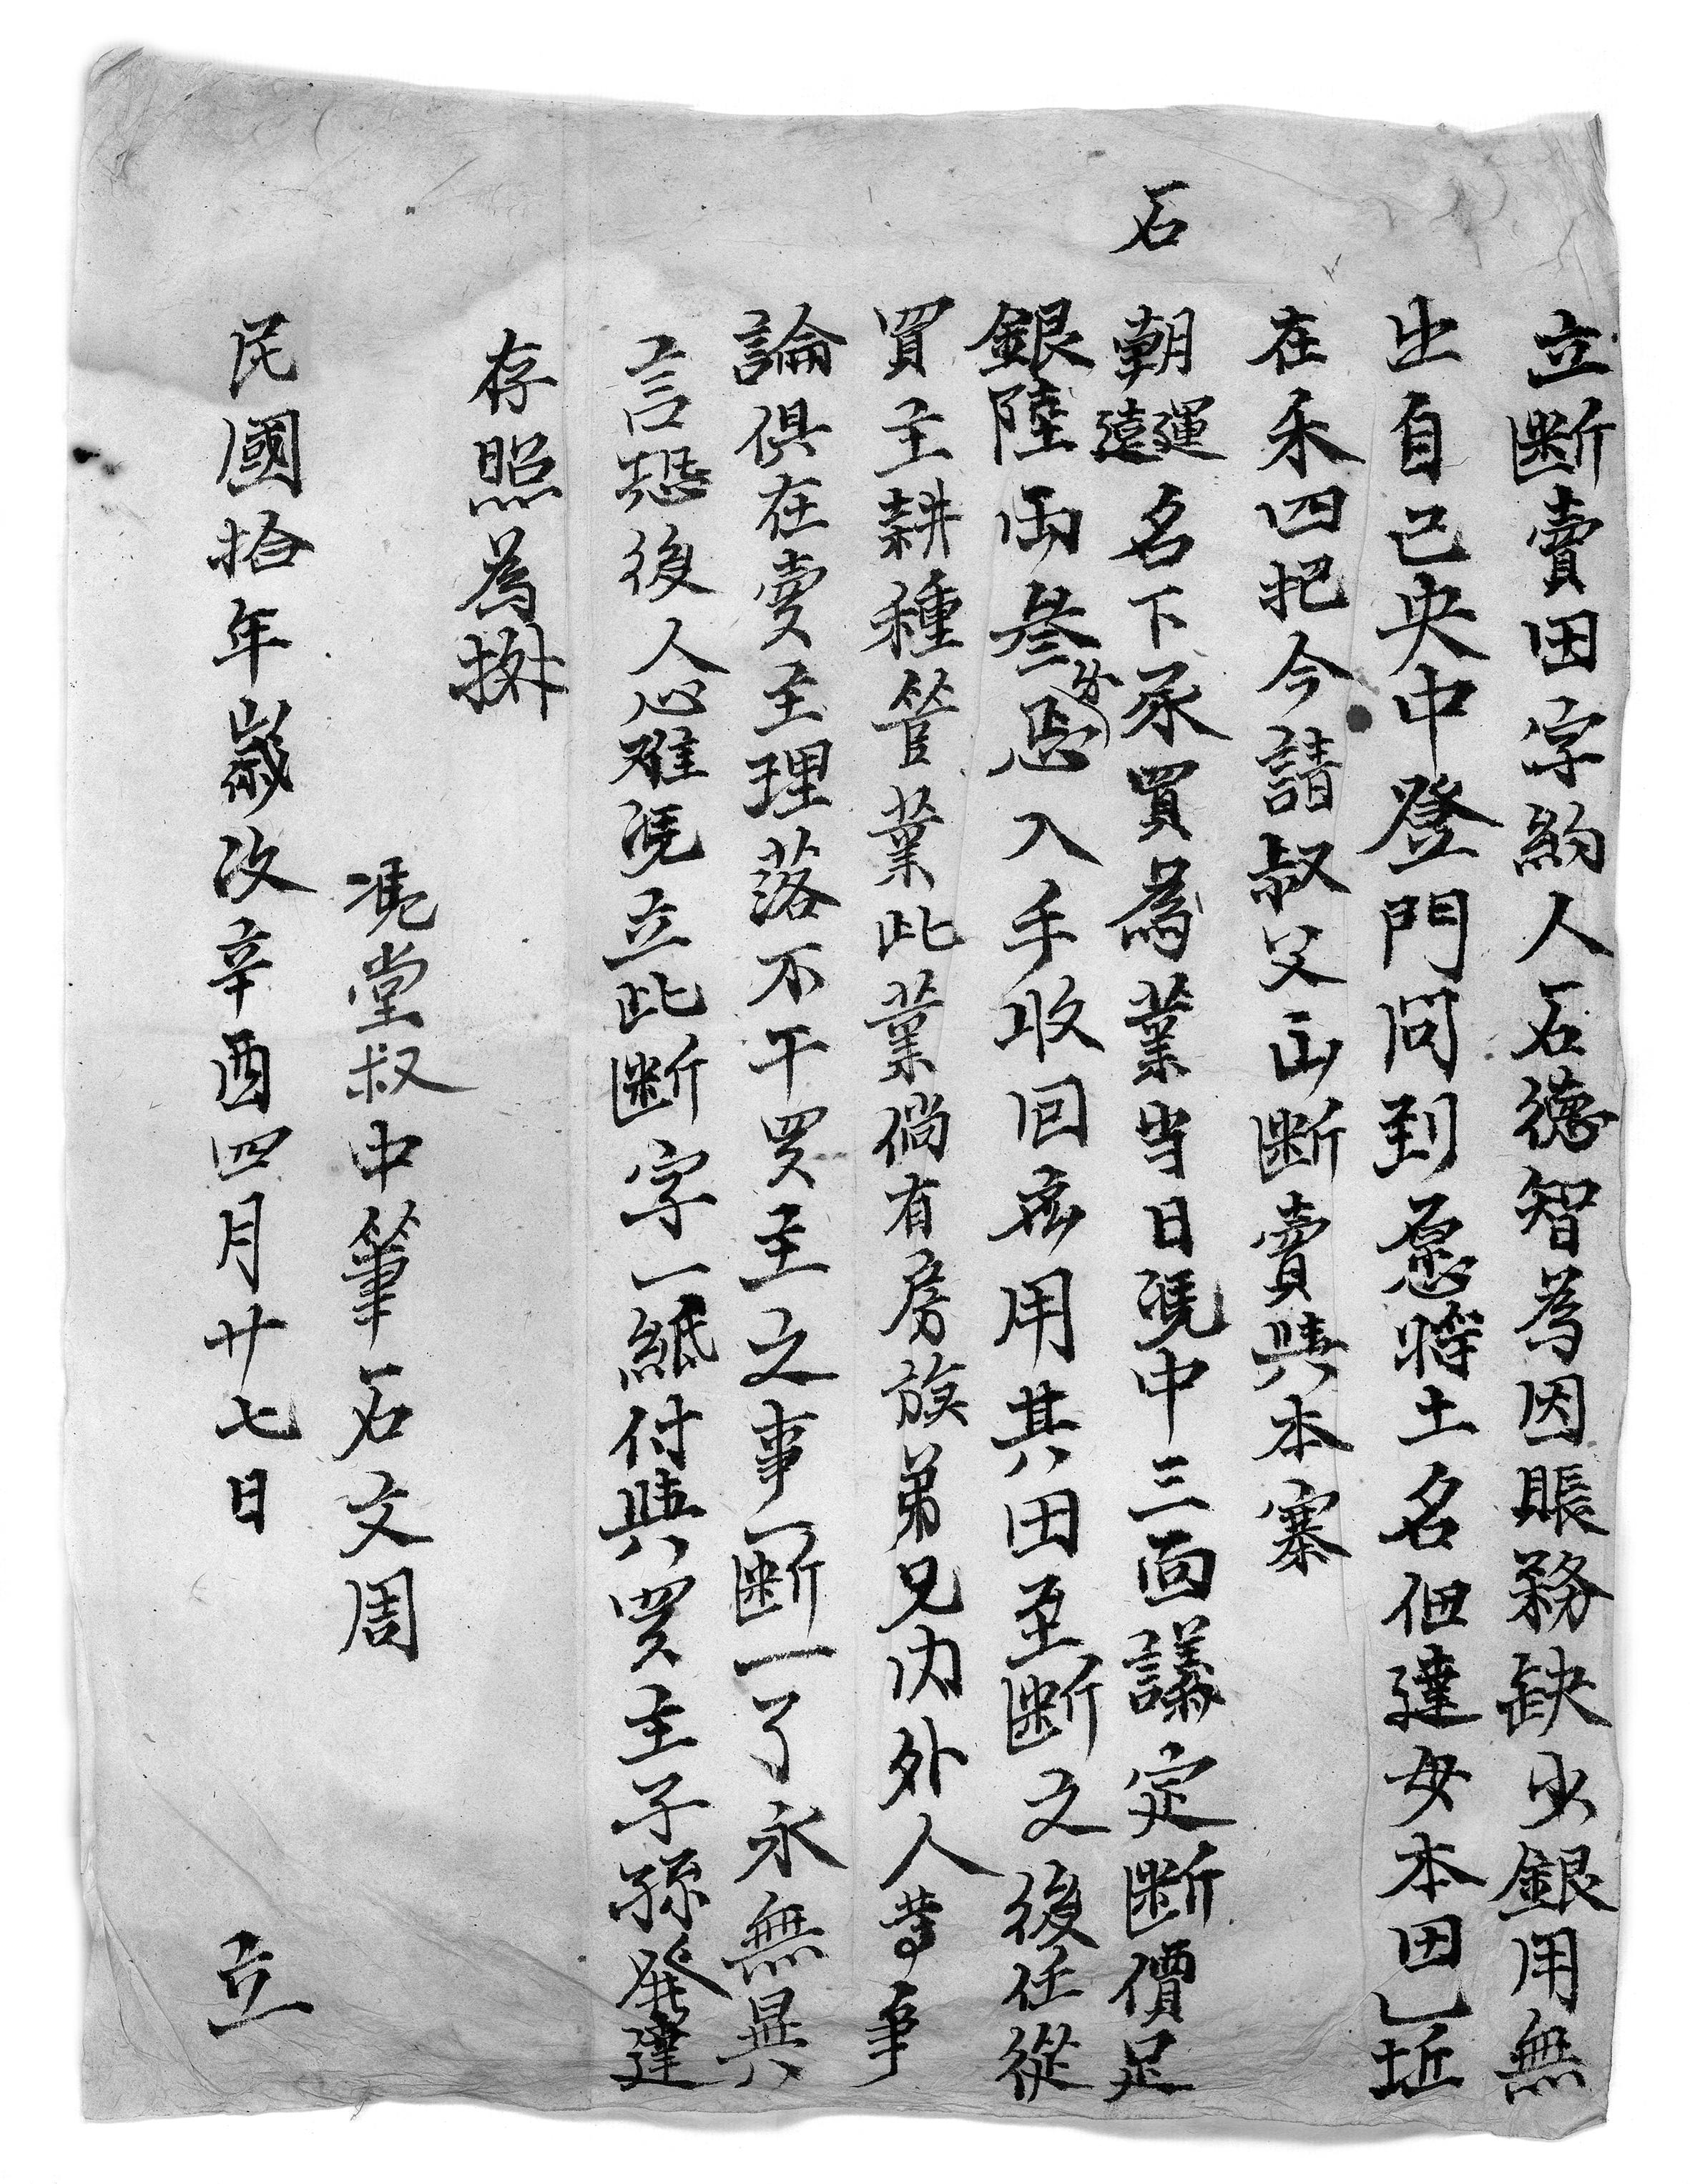 立断賣田字約人石德智為因賬務缺少銀用無
出自己央中登門問到愿將土名佃達女本田乚坵
在禾四把今請叔父正断賣與本寨
石朝運遠名下承買為業当日凴中三面議定断價足
銀陸両叁分入手收回應用其田至断之後任從
買主耕種管業此業倘有房族弟兄内外人等爭
論俱在賣主理落不干買主之事一断一了永無異
言恐後人心难凴立此断字一紙付與買主子孫發達
存照為據
凴堂叔中筆石文周
民國拾年歲次辛酉四月廿七日 立